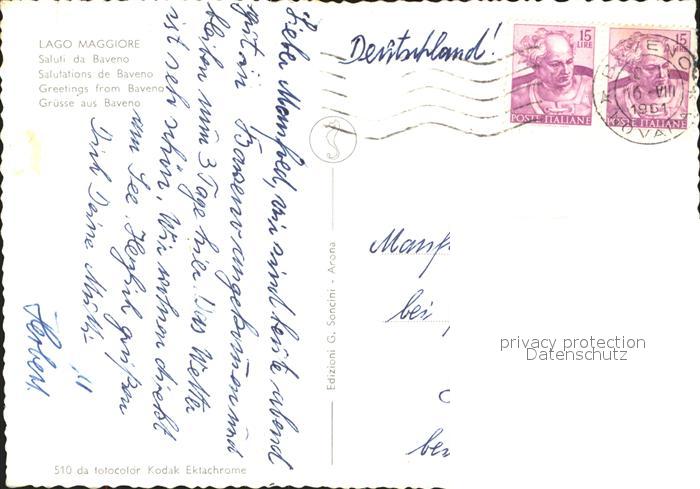 LAGO MAGGIORE
Saluti da Baveno
Salutations de Baveno
Greetings from Baveno
Grüsse aus Baveno
Lieber Manfred, wir sind heute abend
gut in Baveno angekommen und
bleiben nun 3 Tage hier. Das Wetter
ist sehr schön. Wir wohnen direkt
am See. Herzlich grüßen
Dich Deine Mutti
Herbert
Deutschland!
15 LIRE
POSTE ITALIANE
15 LIRE
POSTE ITALIANE
BAVENO
VIII
1961
NOVARA
Edizioni G. Soncini - Arona
Manf
bei
bei
privacy protection
Datenschutz
510 da fotocolor Kodak Ektachrome